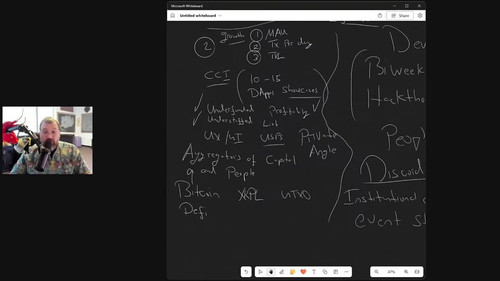 Microsoft Whiteboard
Untitled whiteboard
Share
Growth 1 MAU
2 2 Tx Per day
3 TVL
CCI 10 - 15
DApps Showcases
Underfunded Profitability
Understaffed List
UX/UI USPs Private
Aggregators of Capital Angle
and People
Bitcoin XRPL UTXO
Defi
Dev
Biweek
Hackatho
Peopl
Discord
Institutional
event s